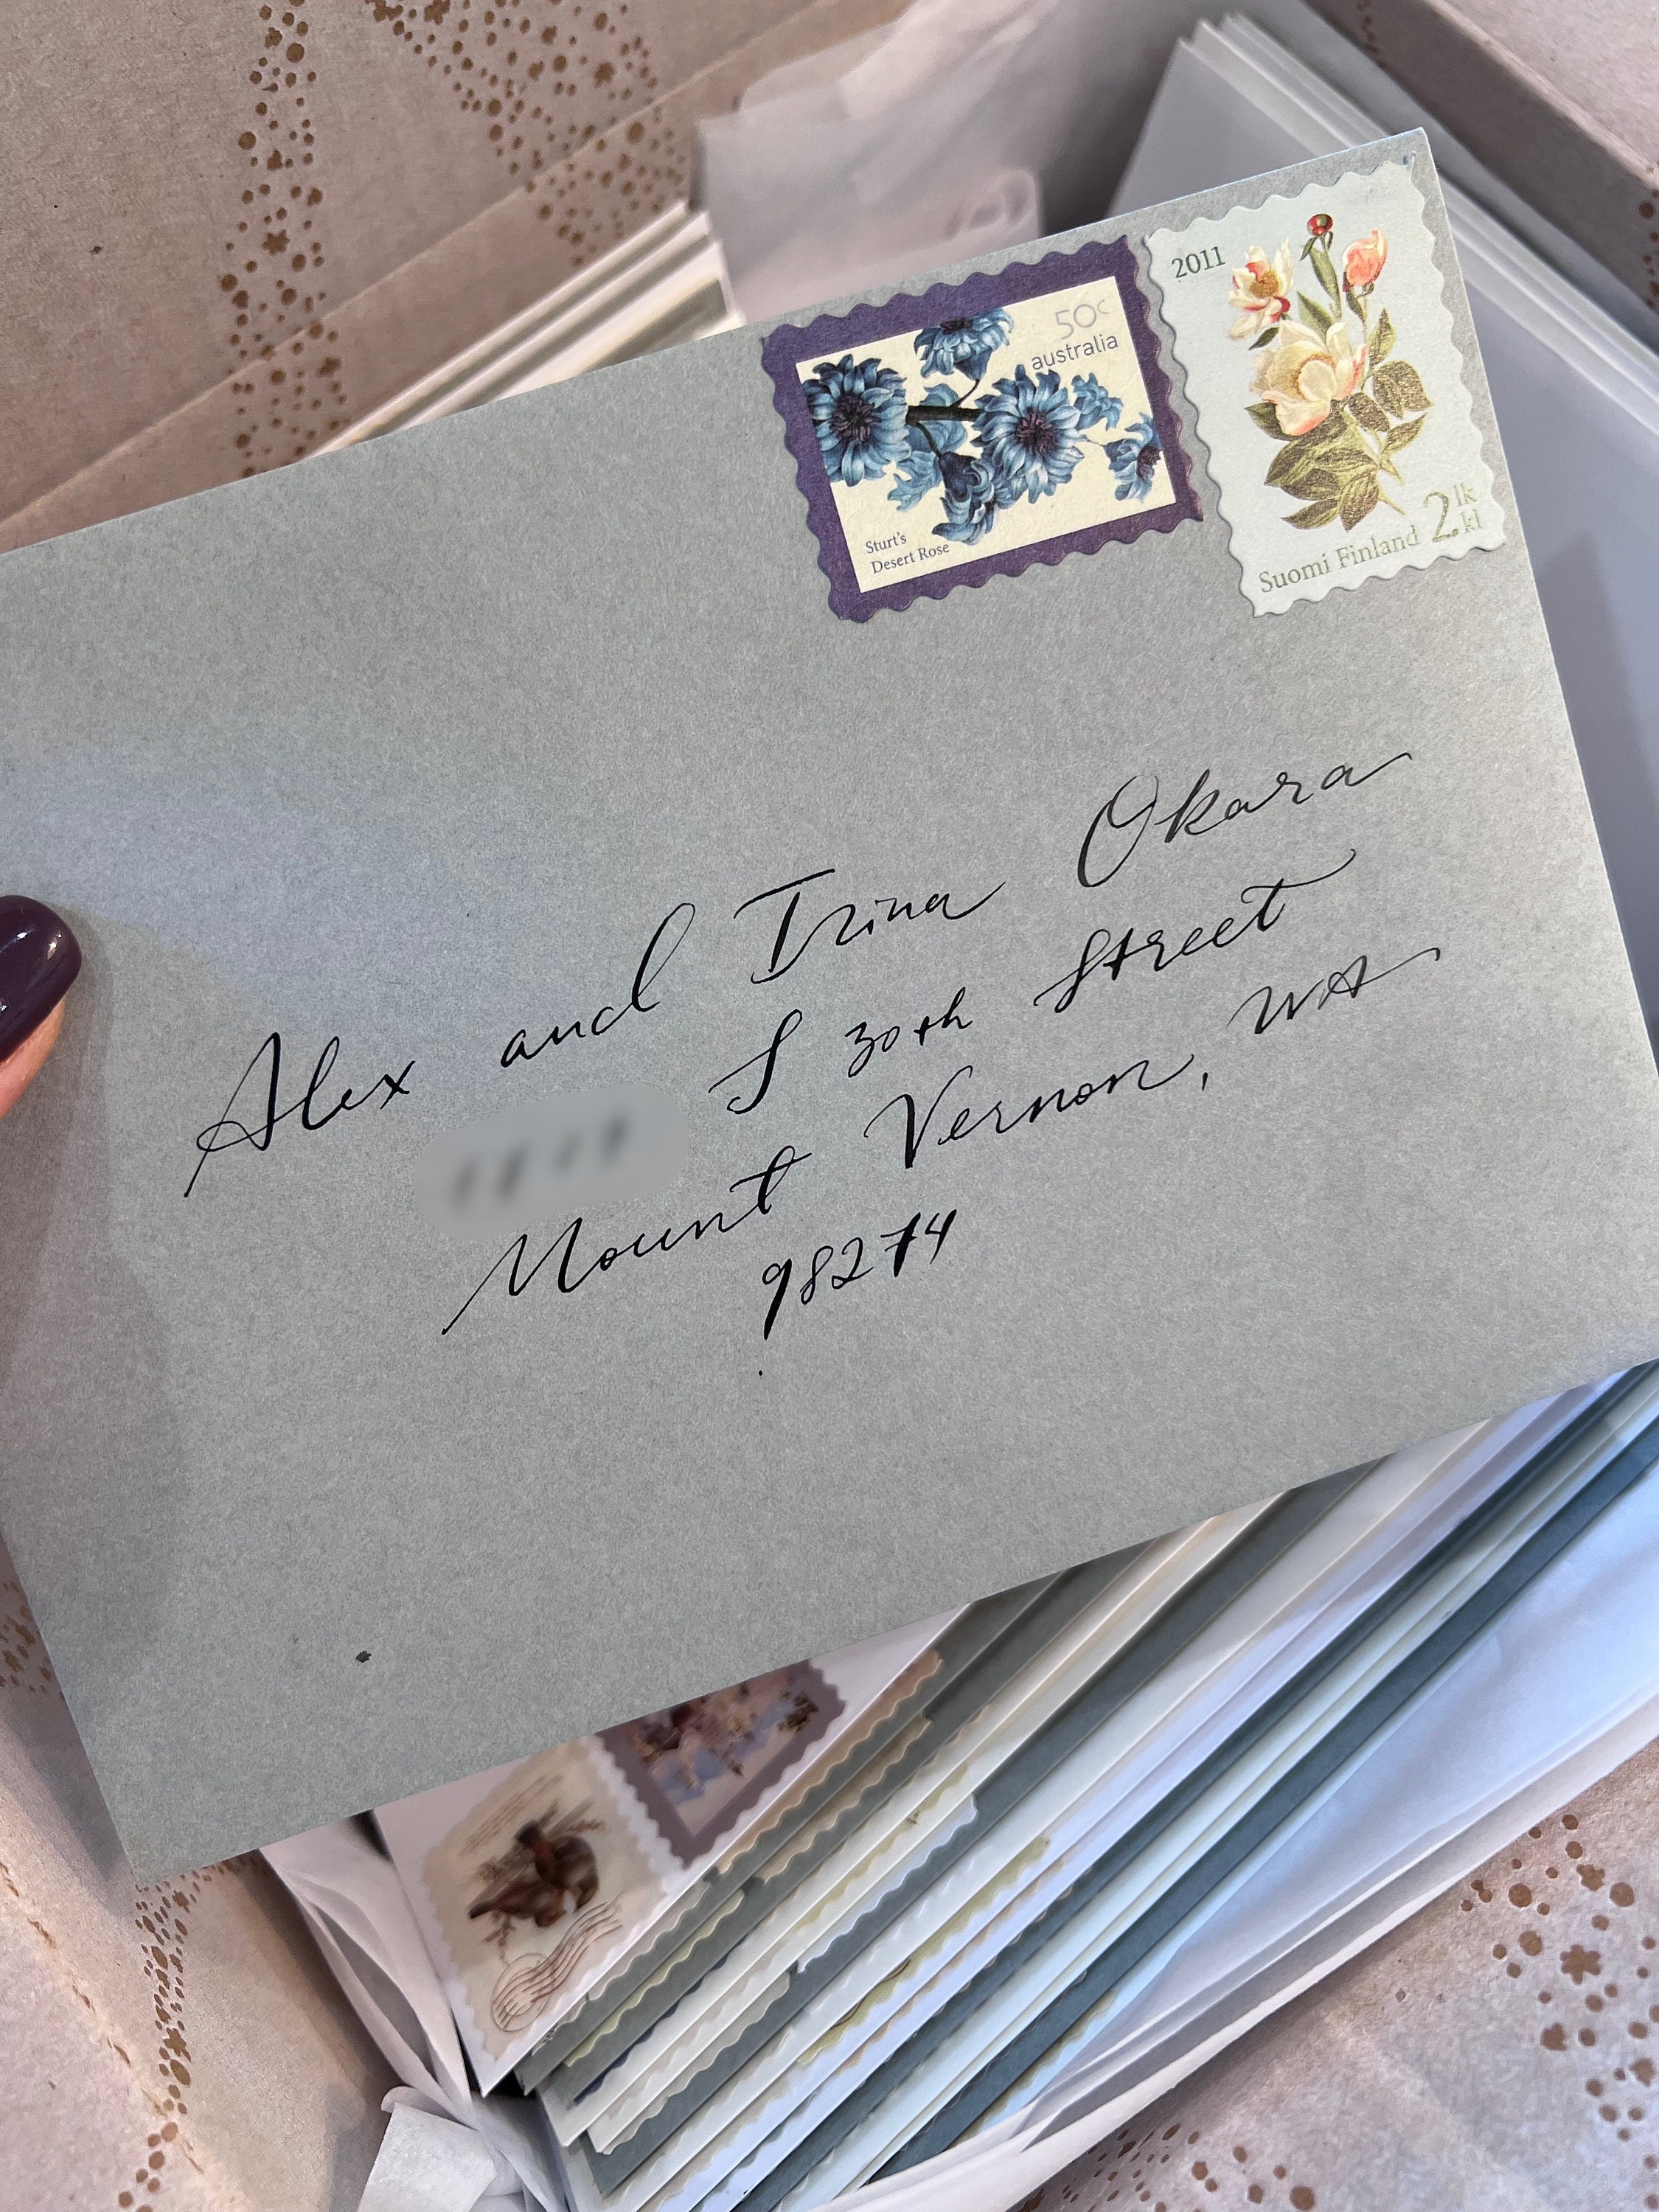 50c
australia
Sturt's
Desert Rose
2011
Suomi Finland 2 lk
kl
Alex and Irina Okara
S 30th Street
Mount Vernon, WA
98274